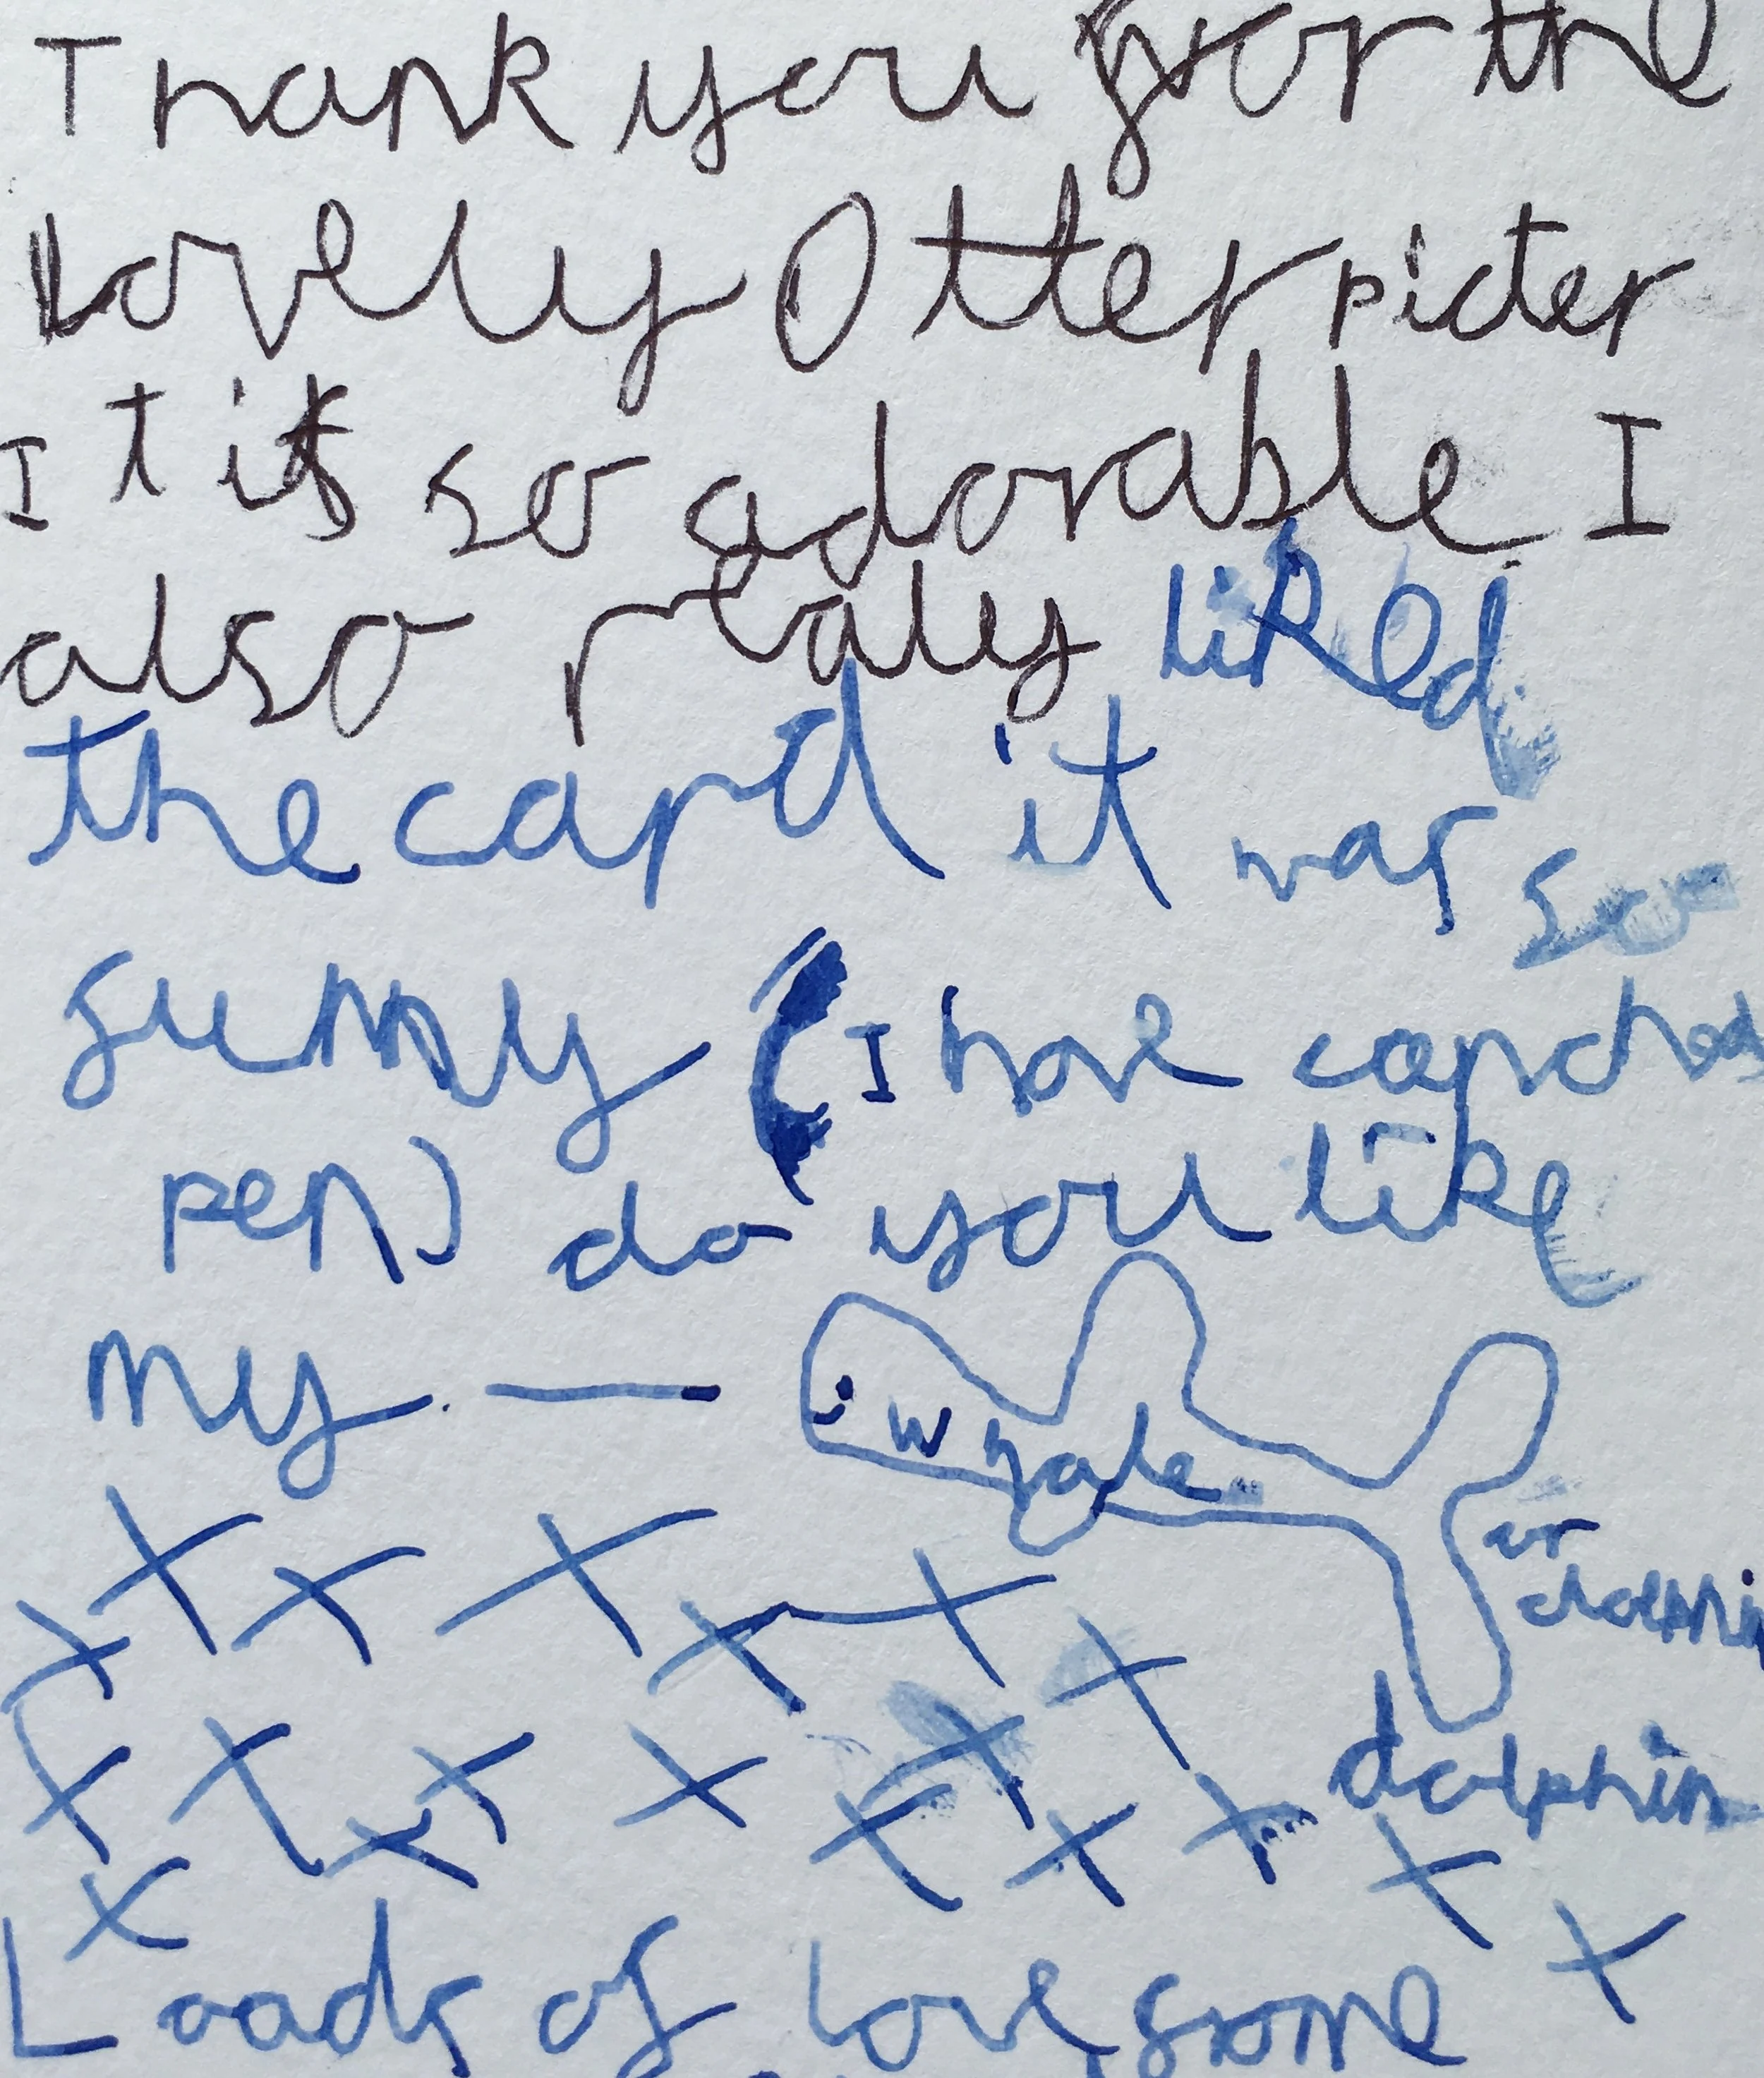 Thank you for the
Lovely Otter picter
It is so adorable I
also realy liked
the card it was so
funny (I have canched
pen) do you like
my — whale
or
dholphin
dolphin
x x x x x x x
x x x x x x x x x
x x
Loads of love from